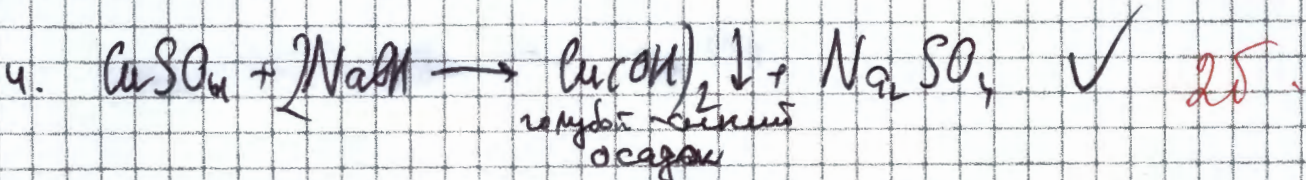 4. CuSO₄ + 2NaOH → Cu(OH)₂↓ + Na₂SO₄ ✓ 2б.
голубой-синий
осадок